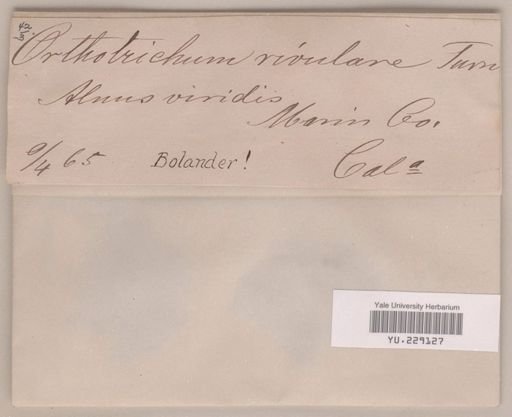 Orthotrichum rivulare Turn
Alnus viridis
Marin Co.
9/4 65 Bolander! Cala
Yale University Herbarium
YU.229127